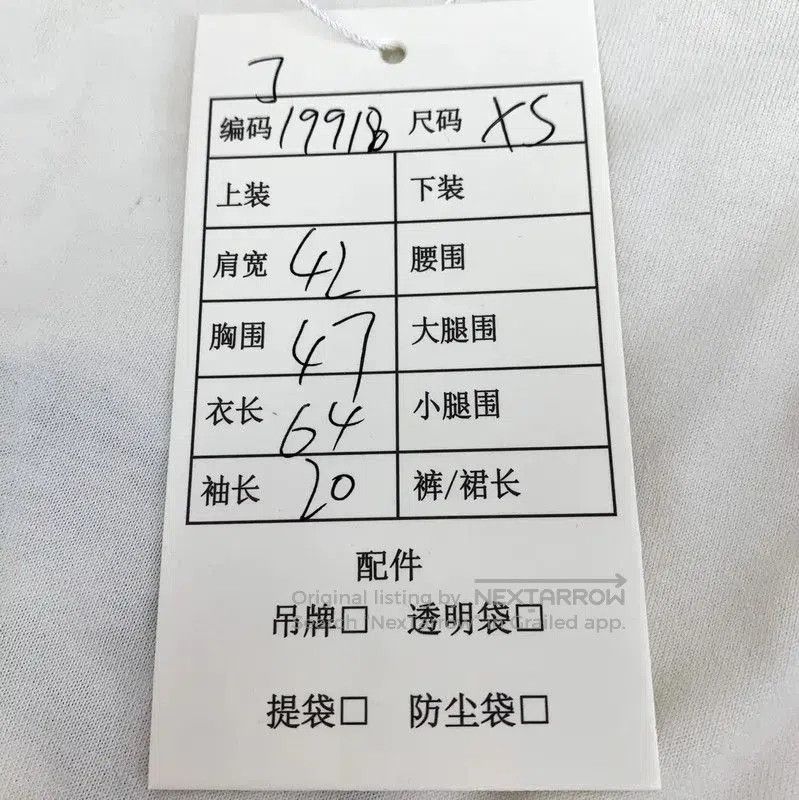 编码 19918 尺码 XS
上装 下装
肩宽 42 腰围
胸围 47 大腿围
衣长 64 小腿围
袖长 20 裤/裙长
配件
Original listing by NEXTARROW
吊牌□ 透明袋□
Search "NexTarrow" in Grailed app.
提袋□ 防尘袋□